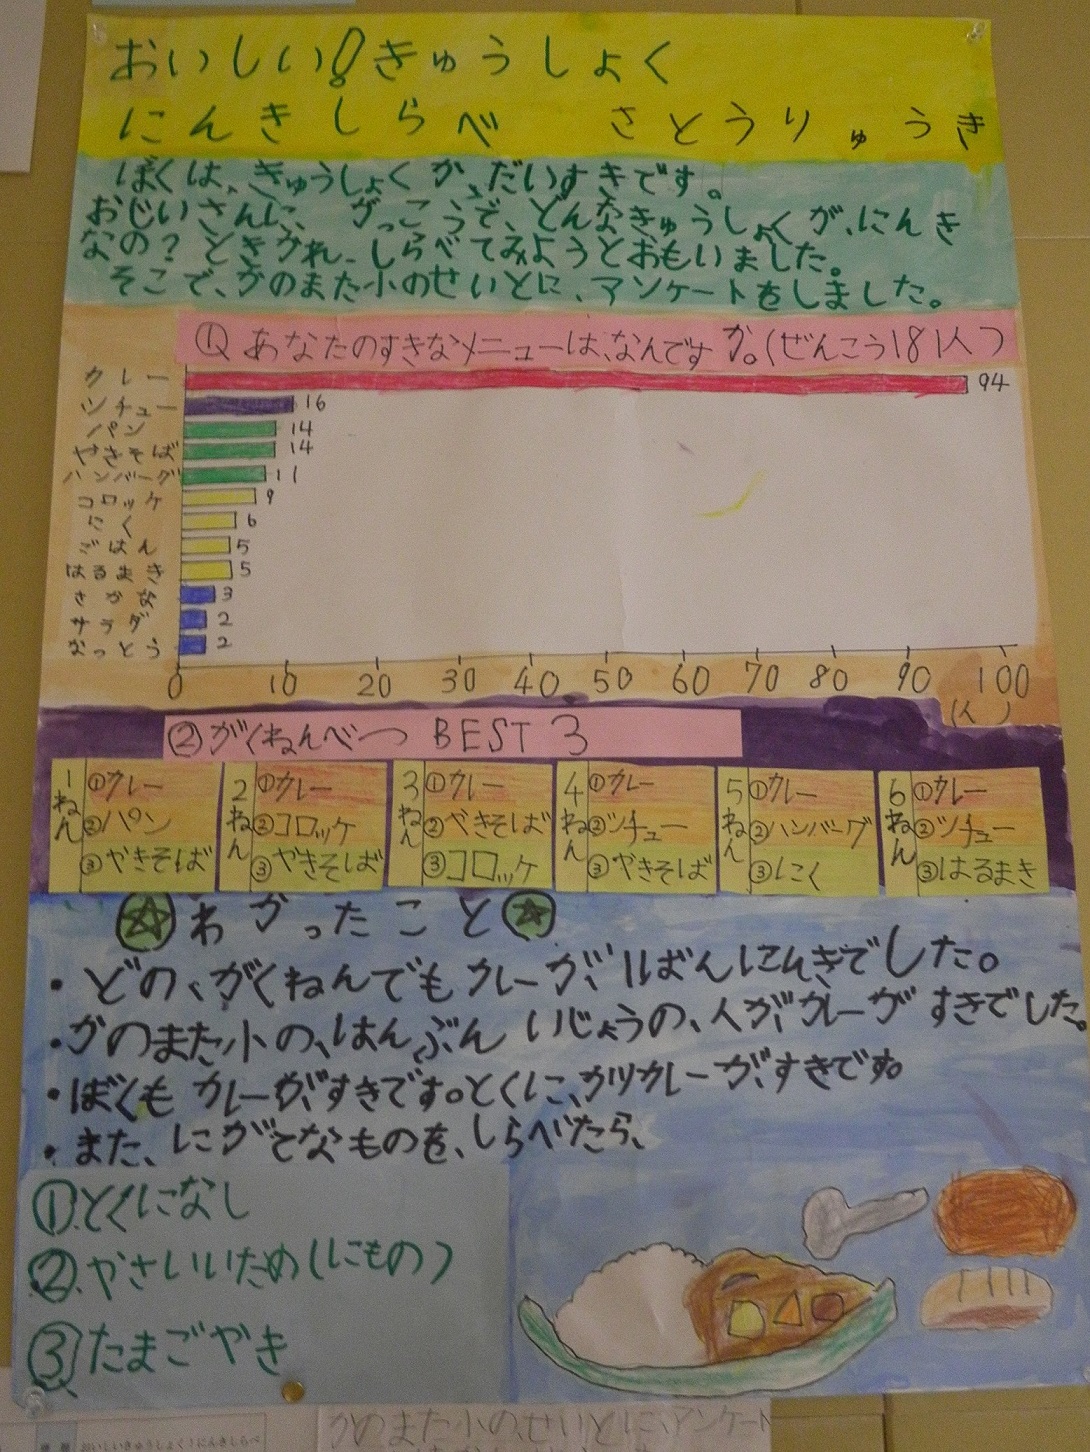 おいしい!きゅうしょく
にんきしらべ さとうりゅうき
ぼくは、きゅうしょくが、だいすきです。
おじいさんに、がっこうで、どんなきゅうしょくが、にんき
なの?ときかれ、しらべてみようとおもいました。
そこで、かのまた小のせいとに、アンケートをしました。
①あなたのすきなメニューは、なんですか。(ぜんこう181人)
カレー 94
シチュー 16
パン 14
やきそば 14
ハンバーグ 11
コロッケ 9
にく 6
ごはん 5
はるまき 5
さかな 3
サラダ 2
なっとう 2
0 10 20 30 40 50 60 70 80 90 100
(人)
②がくねんべつ BEST 3
1ねん ①カレー ②パン ③やきそば
2ねん ①カレー ②コロッケ ③やきそば
3ねん ①カレー ②やきそば ③コロッケ
4ねん ①カレー ②シチュー ③やきそば
5ねん ①カレー ②ハンバーグ ③にく
6ねん ①カレー ②シチュー ③はるまき
わかったこと
・どの、がくねんでもカレーが、1ばんにんきでした。
・かのまた小の、はんぶんいじょうの、人が、カレーがすきでした。
・ぼくもカレーが、すきです。とくに、カツカレーが、すきです。
・また、にがてなものを、しらべたら、
①とくになし
②やさいいため(にもの)
③たまごやき
かのまた小の、せいとに、アンケート
おいしいきゅうしょくにんきしらべ